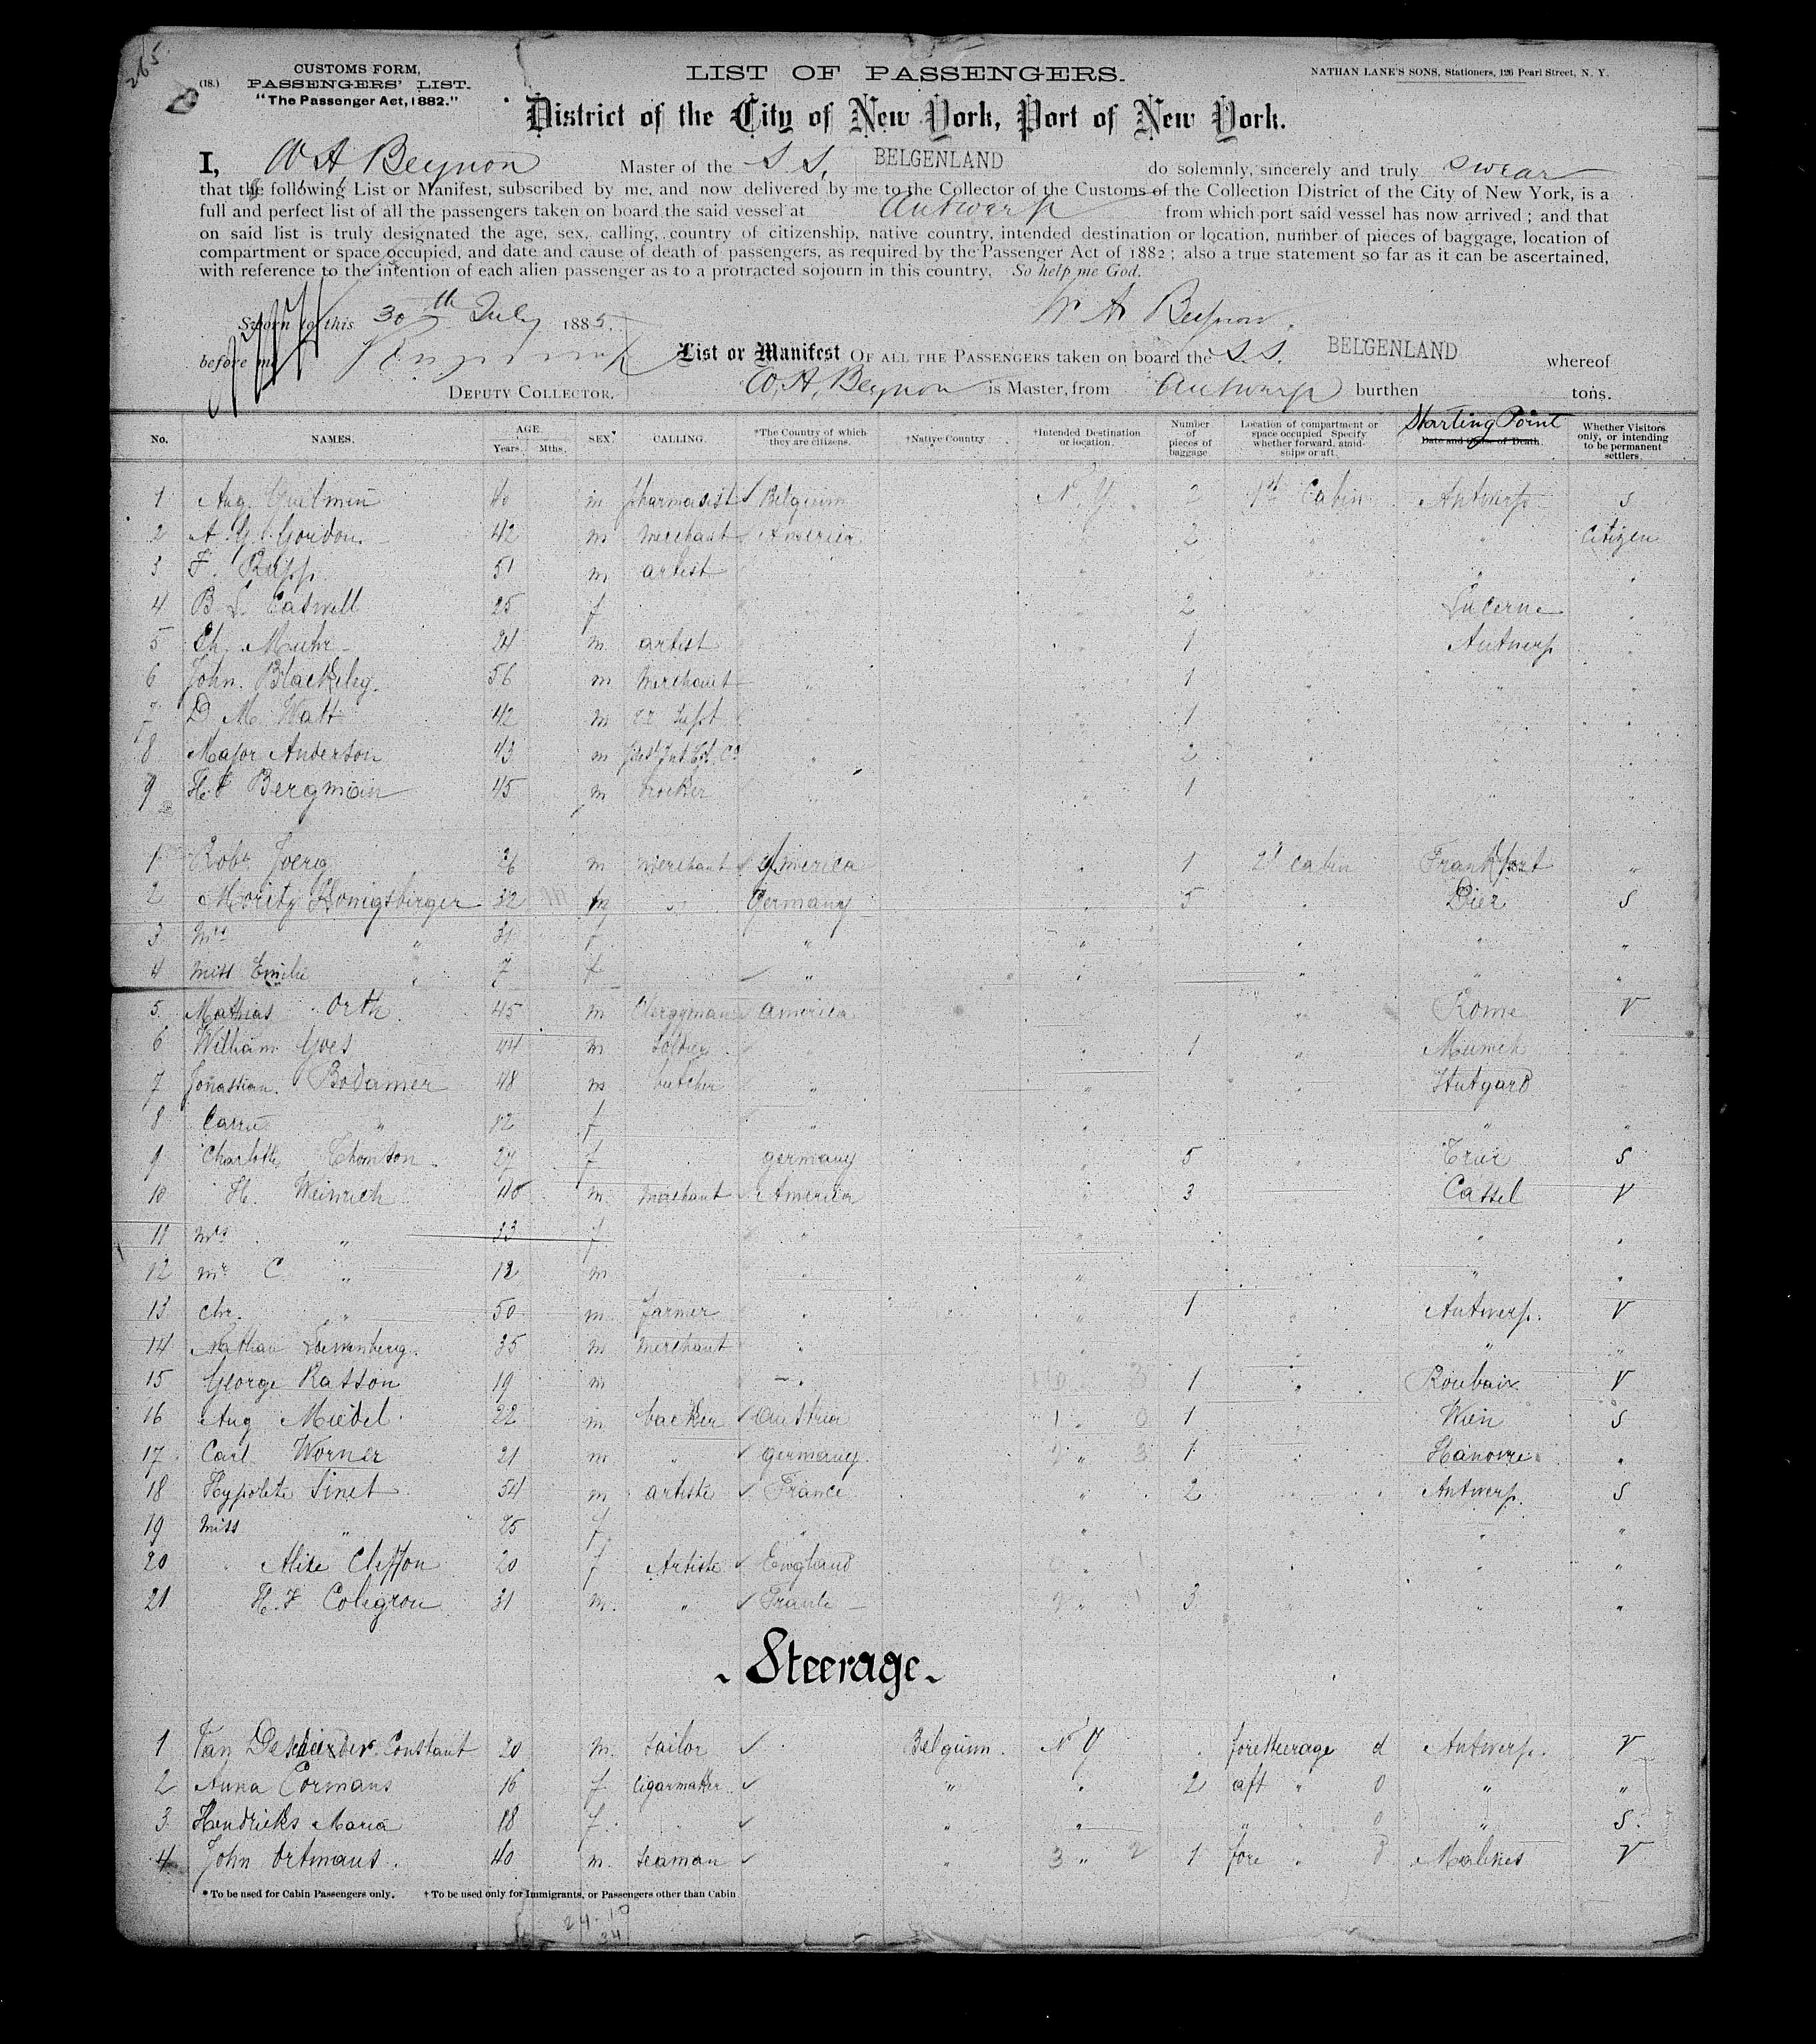 265
(18.)
CUSTOMS FORM,
PASSENGERS' LIST.
"The Passenger Act, 1882."
LIST OF PASSENGERS.
NATHAN LANE'S SONS, Stationers, 126 Pearl Street, N. Y.
District of the City of New York, Port of New York.
I, W A, Beynon Master of the S S, BELGENLAND do solemnly, sincerely and truly swear
that the following List or Manifest, subscribed by me, and now delivered by me to the Collector of the Customs of the Collection District of the City of New York, is a
full and perfect list of all the passengers taken on board the said vessel at Antwerp from which port said vessel has now arrived ; and that
on said list is truly designated the age, sex, calling, country of citizenship, native country, intended destination or location, number of pieces of baggage, location of
compartment or space occupied, and date and cause of death of passengers, as required by the Passenger Act of 1882 ; also a true statement so far as it can be ascertained,
with reference to the intention of each alien passenger as to a protracted sojourn in this country. So help me God.
Sworn to this 30th July 1885. W A Beynon.
before me
DEPUTY COLLECTOR.
List or Manifest OF ALL THE PASSENGERS taken on board the S.S. BELGENLAND whereof
W, A, Beynon is Master, from Antwerp burthen tons.
No. NAMES. AGE. Years. Mths. SEX. CALLING. *The Country of which they are citizens. †Native Country †Intended Destination or location. Number of pieces of baggage Location of compartment or space occupied Specify whether forward, amidships or aft. Starting Point Date and cause of Death. Whether Visitors only, or intending to be permanent settlers.
1 Aug. 40 m pharmacist ✓ Belguim N. Y. 2 1st Cabin Antwerp S
2 A. G. Gordon. 42 m merchant America 2 " " Citizen
3 F. Rapp. 51 m artist " "
4 B. L. Caswell 25 f 2 Lucerne
5 Ch. Muhr 24 m artist 1 Antwerp
6 John. Blackeleg. 56 m Merchant " 1 " "
7 D. M. Watt 42 m 1 "
8 Major Anderson 43 m " 2 "
9 H F Bergmain 45 m broker 1 "
1 Robt Joerg 26 m merchant ✓ America " 1 2d cabin Frankfort "
2 Moritz Konigsberger 32 m " Germany 5 Trier S
3 Mrs " 31 f " " " "
4 Miss Emilie " 7 f " " " "
5. Mathias Orth. 45 m Clergyman America " Rome V
6 William Goes 44 m soldier 1 " Munich
7 Jonathan. Bodamer 48 m butcher " " Stutgard
8 Carrie " 12 f " " "
9 Charlotte Thomson. 27 f germany 5 " Trier S
10 H. Weinrich 40 m. merchant America 3 Cassel V
11 Mrs " 33 f " " "
12 mr C. " 12 m " " "
13 chr. " 50 m. farmer " 1 " Antwerp. V
14 Nathan Loewenberg. 35 m merchant " " "
15 George Rasson 19 m 1 " Roubaix V
16 Aug Miedel. 22 m backer ✓ Austria 1 Wien S
17. Carl Worner 21 m " ✓ germany. " 1 Hanovre "
18 Hypolite Sinet 54 m artiste ✓ France " 2 Antwerp. S
19 Miss " 25 f. " " "
20 Alice Cliffton 20 f Artiste ✓ England " "
21 H. F Colegrou 31 m. " ✓ France " 3 " "
- Steerage -
1 Van Constant 20 m. tailor ✓ Belguim. N Y foresteerage d Antwerp. V
2 Anna Cormans 16 f Cigarmaker ✓ " " 2 aft " 0 " "
3 Hendricks Maria 18 f. " ✓ " " " " S.
4 John Ortmans. 40 m. seaman ✓ " 3 " 2 1 fore " Malines V
* To be used for Cabin Passengers only. † To be used only for Immigrants, or Passengers other than Cabin
24-10
34